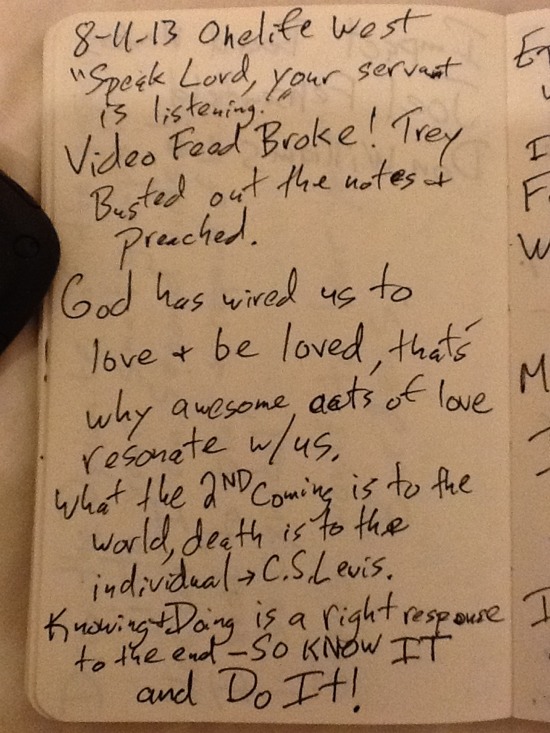 8-11-13 Onelife West
"Speak Lord, your servant
is listening."
Video Feed Broke! Trey
Busted out the notes +
Preached.
God has wired us to
love + be loved, that's
why awesome acts of love
resonate w/us.
What the 2ND Coming is to the
world, death is to the
individual → C.S. Lewis.
Knowing + Doing is a right response
to the end - SO KNOW IT
and Do It!